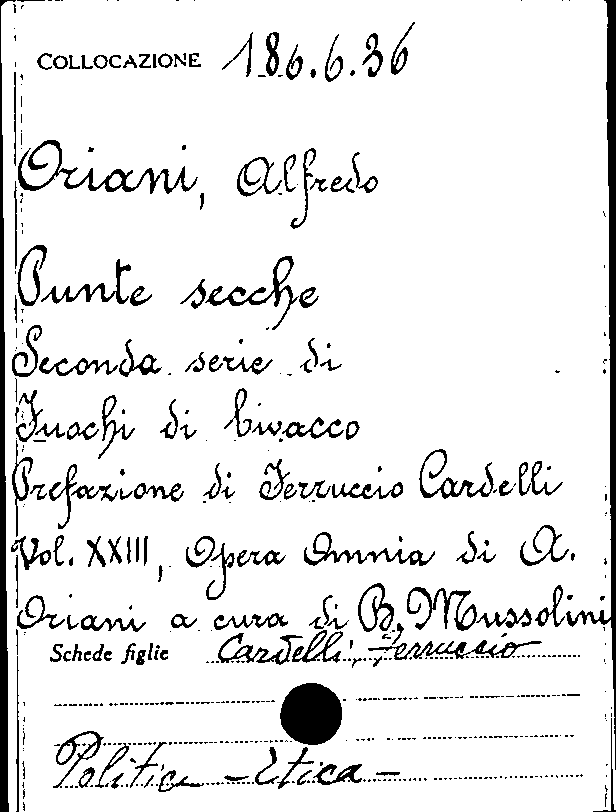 COLLOCAZIONE 186.6.36
Oriani, Alfredo
Punte secche
Seconda serie di
Fuochi di bivacco
Prefazione di Ferruccio Cardelli
Vol. XXIII, Opera Omnia di A.
Oriani a cura di B. Mussolini
Schede figlie Cardelli, Ferruccio
Politica - Etica -